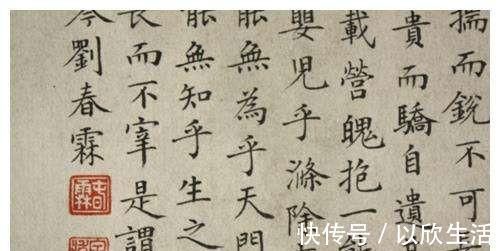 揣而銳不可
貴而驕自遺
載營魄抱一
嬰兒乎滌除
能無為乎天門
能無知乎生之
長而不宰是謂
劉春霖
春霖
快传号 / 以欣生活